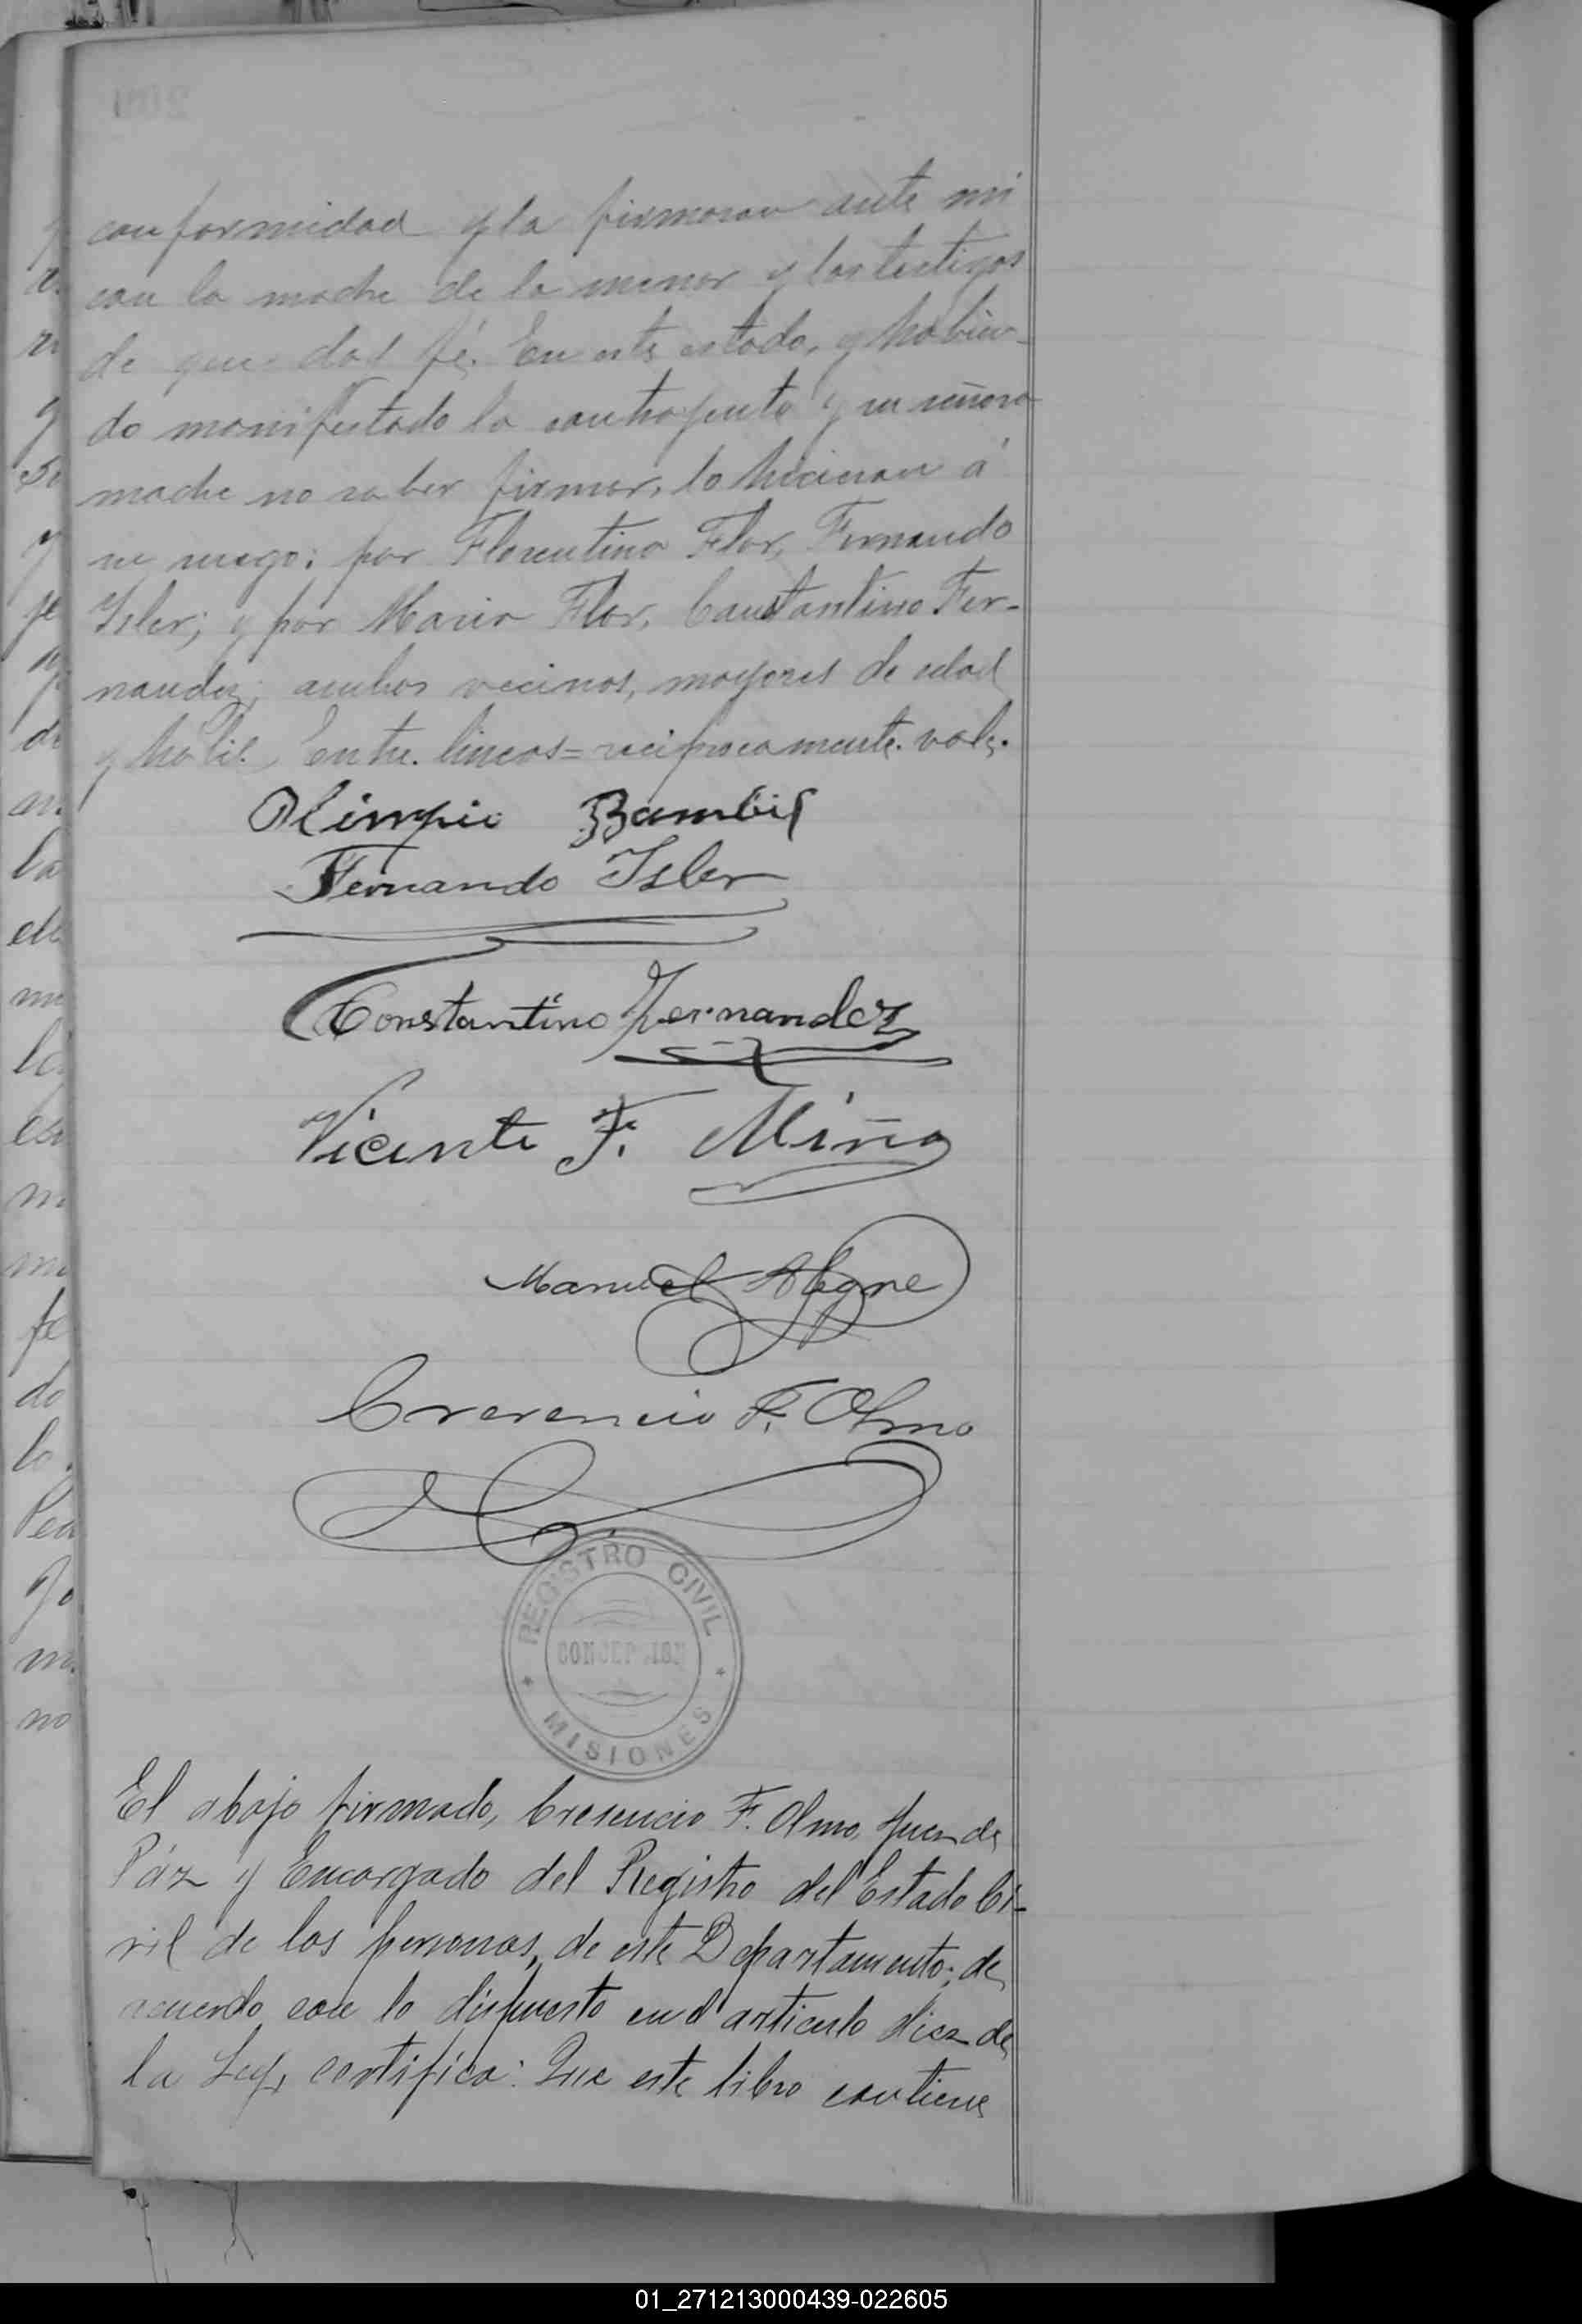 conformidad y la firmaron ante mi
con la madre de la menor y los testigos
de que doy fé. En este estado, y habien-
do manifestado la contrayente y su señora
madre no saber firmar, lo hicieron á
su ruego: por Florentina Flor, Fernando
Isler; y por Maria Flor, Constantino Fer-
nandez; ambos vecinos, mayores de edad
y hábil. Entre lineas=reciprocamente. vale.
Olimpio
Fernando Isler
Constantino Fernandez
Vicente F. Miño
Manuel Alegre
Cresencio F. Olmo
REGISTRO CIVIL
MISIONES
El abajo firmado, Cresencio F. Olmo, Juez de
Páz y Encargado del Registro del Estado Ci-
vil de las personas, de este Departamento; de
acuerdo con lo dispuesto en el articulo diez de
la Ley, certifica: Que este libro contiene
01_271213000439-022605